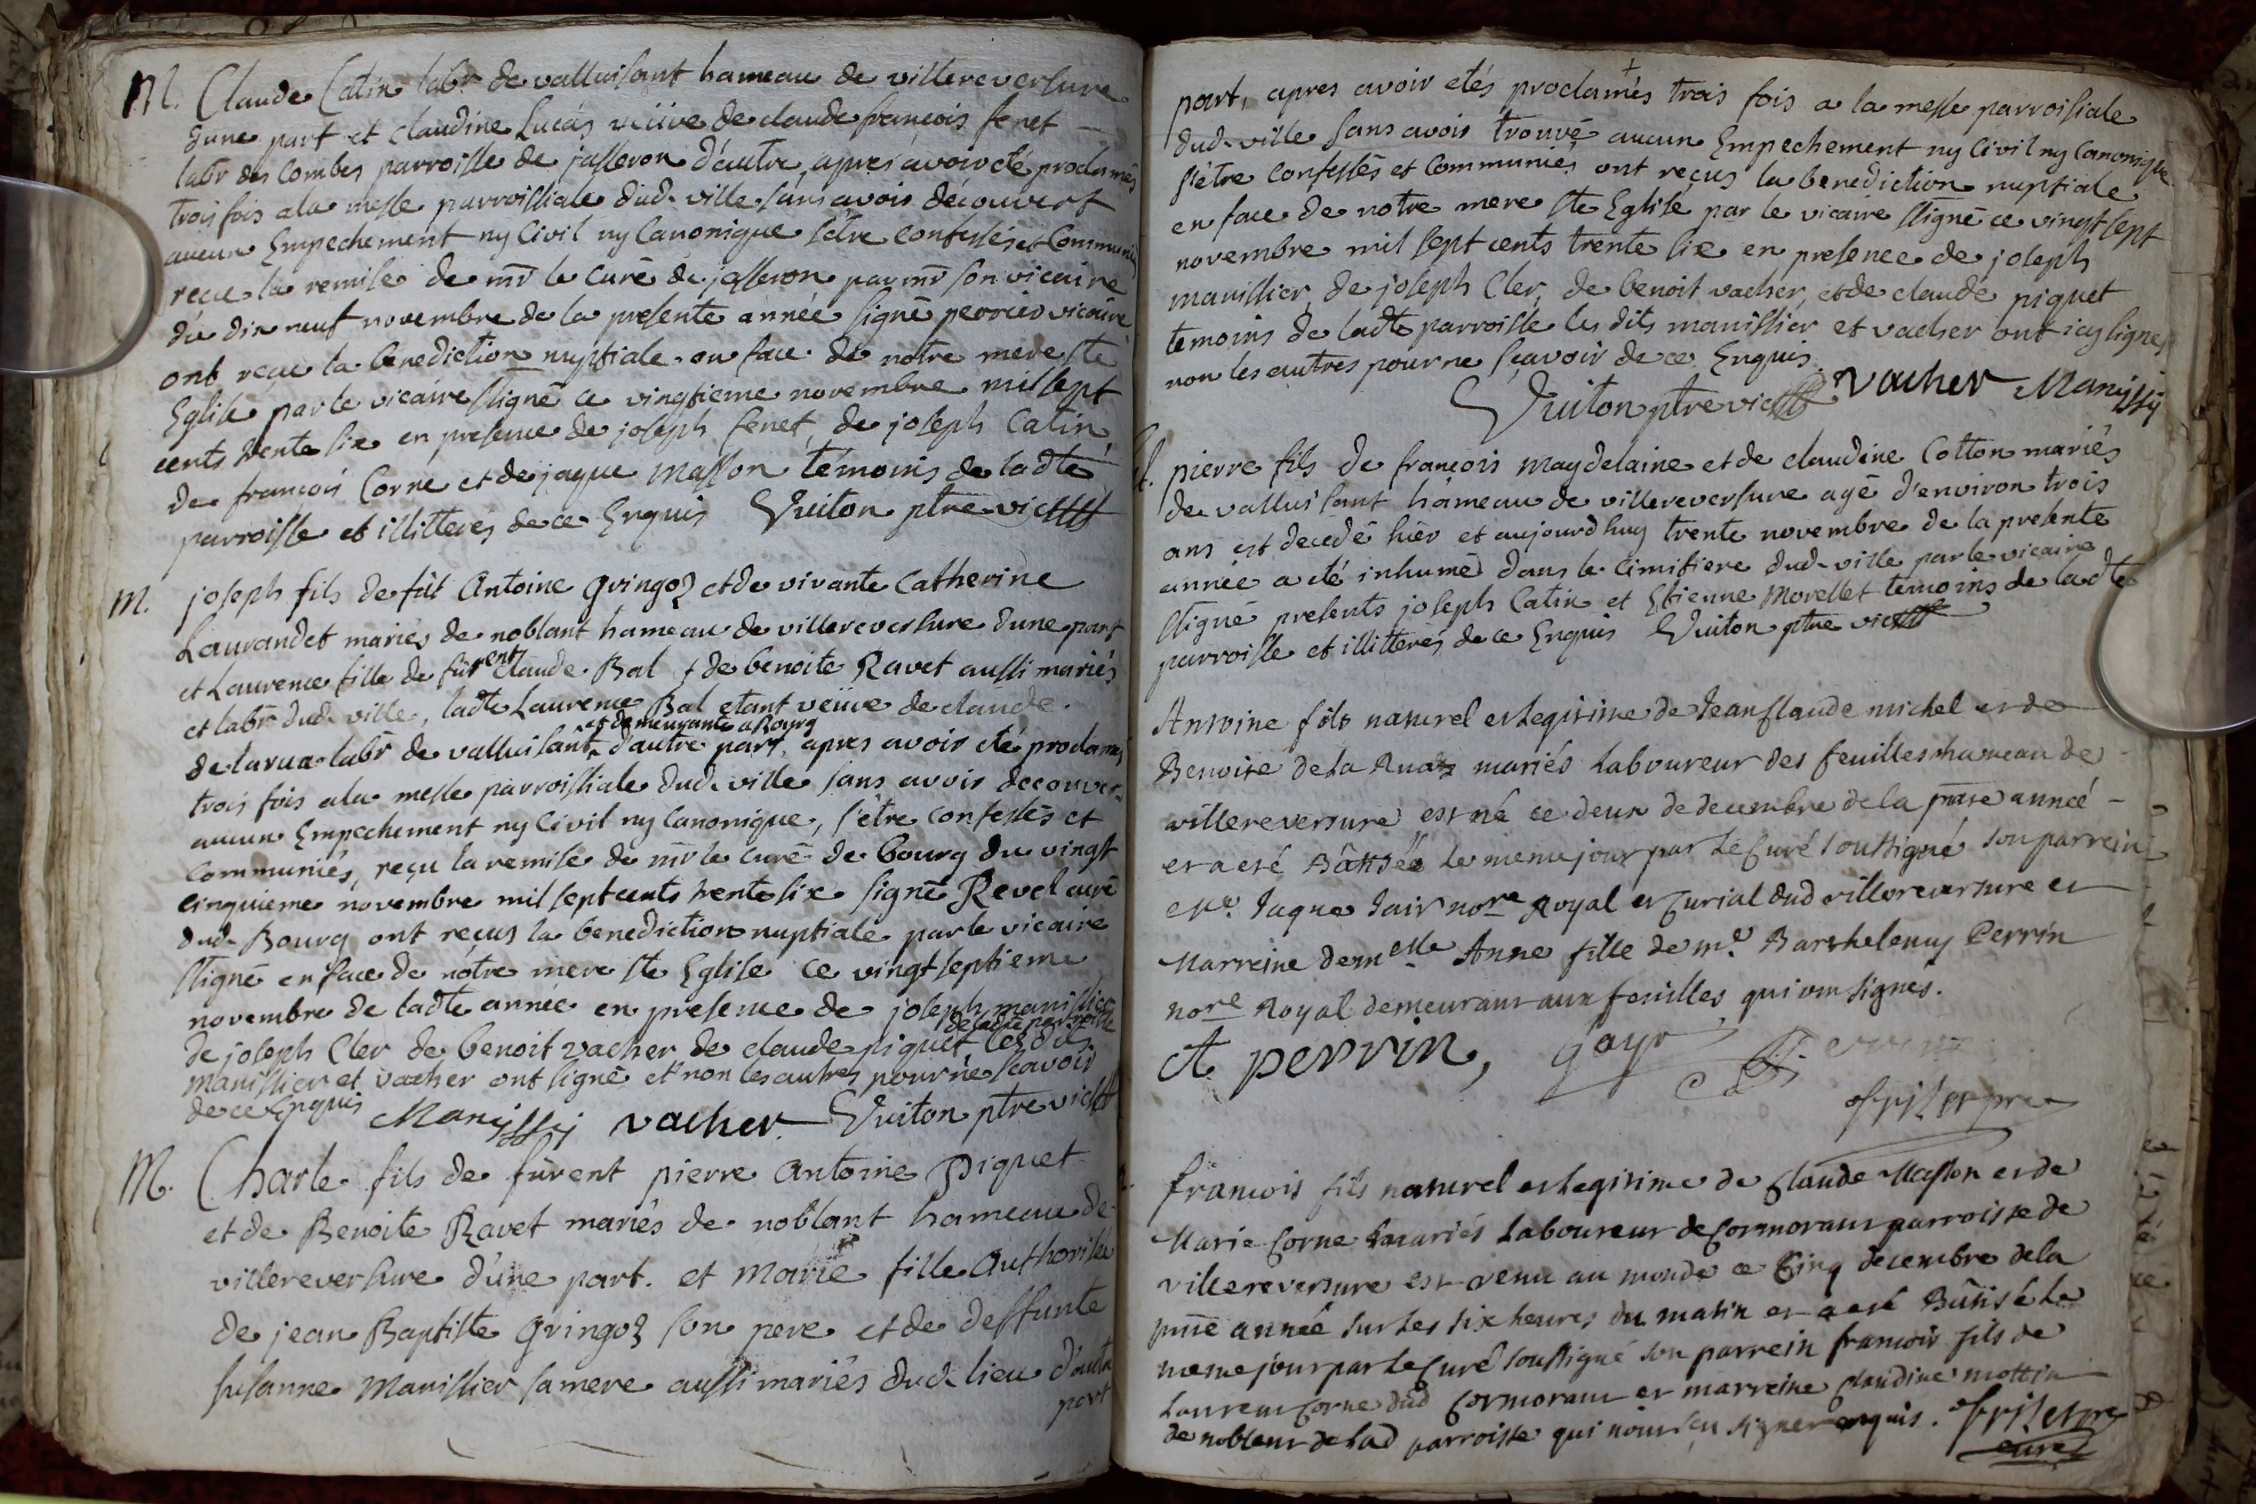 M. Claude Catin labr de valluisant hameau de villereversure
dune part et claudine Lucas veüve de claude francois fenet
labr des Combes parroisse de jasseron d'autre, apres avoir eté proclamés
trois fois a la messe parroissiale dud. ville sans avoir découvert
aucun Empechement ny Civil ny Canonique s'être confessés et Communiés
reçue la remise de mr le Curé de jasseron par mr son vicaire
du dix neuf novembre de la presente année signé perrier vicaire
ont reçue la benediction nuptiale en face de notre mere ste
Eglise par le vicaire ssigné ce vingtieme novembre mil sept
cents trente six en presence de joseph fenet, de joseph Catin,
de francois Corne et de jaque Masson témoins de ladte
parroisse et illitteres de ce Enquis Vuiton ptre vic
M. joseph fils de fût Antoine gringoz et de vivante Catherine
Laurandet mariés de noblant hameau de villereversure dune part
et Laurence fille de fûrent claude Bal & de benoite Ravet aussi mariés
et labr dud. ville, ladte Laurence Bal etant veüve de claude
et demeurante a Bourg
de larua labr de valluisant d'autre part, apres avoir eté proclamés
trois fois a la messe parroissiale dud. ville sans avoir decouvert
aucun Empechement ny Civil ny Canonique, s'être confessés et
Communiés, reçu la remise de mr le curé de bourg du vingt
cinquieme novembre mil sept cents trente six signé Revel curé
dud. Bourg ont reçus la benediction nuptiale par le vicaire
ssigné en face de nôtre mere ste Eglise ce vingt septieme
novembre de ladte année en presence de joseph manissier
de ladte parroisse
de joseph Cler de benoit vacher de claude piquet, les dits
manissier et vacher ont signé et non les autres pour ne sçavoir
de ce Enquis Manissy vacher Vuiton ptre vic
M. Charle fils de fürent pierre antoine Piquet
et de Benoite Ravet mariés de noblant hameau de
villereversure d'une part. et Marie fille Authorisée
de jean Baptiste gringoz son pere et de deffunte
susanne Manissier sa mere aussi mariés dud. lieu d'autre
part
part, apres avoir etés proclamés trois fois a la messe parroissiale
dud. ville sans avoir trouvé aucun Empechement ny Civil ny Canonique
s'être confessés et Communiés ont reçus la benediction nuptiale
en face de notre mere ste Eglise par le vicaire ssigné ce vingt sept
novembre mil sept cents trente six en presence de joseph
manissier, de joseph Cler, de benoit vacher, et de claude piquet
temoins de ladte parroisse les dits manissier et vacher ont icy signes
non les autres pour ne sçavoir de ce Enquis.
Vuiton ptre vic vacher Manissy
pierre fils de francois maydelaine et de claudine Cotton mariés
de valluisant hameau de villereversure agé d'environ trois
ans est decedé hier et aujourdhuy trente novembre de la presente
année a eté inhumé dans le cimitiere dud. ville par le vicaire
ssigné presents joseph Catin et Etienne Morellet temoins de ladte
parroisse et illitterés de ce Enquis Vuiton ptre vic
Antoine fils naturel et legitime de Jean Claude michel et de
Benoite de la Ruaz mariés laboureur des feuilles hameau de
villereversure est né ce deux de decembre de la pnte année
et a eté Bâtisé le meme jour par le Curé soussigné son parrein
Me. Jaque Jair nore Royal et Curial dud villereversure et
Marreine demelle Anne fille de me. Barthelemy Perrin
nore Royal demeurant aux feuilles qui ont signés.
A perrin, gayr Perrin
frilet pre
francois fils naturel et legitime de Claude Masson et de
Marie Corne mariés laboureur de Cormorant parroisse de
villereversure est venu au monde ce Cinq decembre de la
pnte année sur les six heures du matin et a eté Bâtisé le
meme jour par le Curé soussigné son parrein francois fils de
Laurent Corne dud Cormorant et marreine Claudine mottin
de noblent de lad parroisse qui n'ont sçu signer enquis. frilet pre
curé